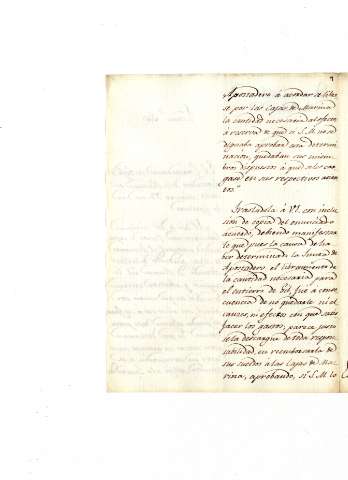 Apostadero á acordar se libra-
se por las Cajas de Marina
la cantidad necesaria al efecto
á reserva de que si S.M. no se
dignaba aprobar esta determi-
nacion, quedaban sus miem-
bros dispuestos á que se les car-
gase en sus respectivos
Trasladola á V.I. con inclu-
sion de copia del enunciado
acuerdo, debiendo manifestar
le que pues la causa de ha-
ber determinado la Junta de
Apostadero el libramiento de
la cantidad necesaria para
el entierro de fué á conse-
cuencia de no quedarle ni al
cances, ni efectos con que satis
facer los gastos, parece justo
se la descargue de toda respon-
sabilidad, en reembolsarla de
sus sueldos á las Cajas de Ma-
rina, aprobando, si S.M. lo